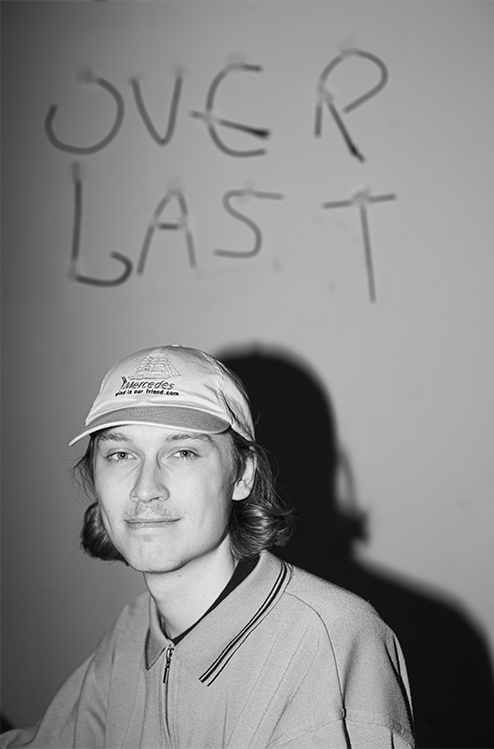 OVER
LAST
Mercedes
wind is our friend.com